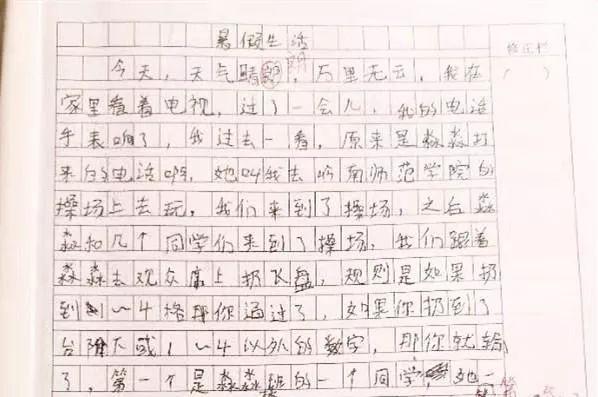 暑假生活
修正栏
今天，天气晴朗，万里无云，我在
（ ）
家里看着电视，过了一会儿，我的电话
手表响了，我过去一看，原来是淼淼打
来的电话啊，她叫我去岭南师范学院的
操场上去玩，我们来到了操场，之后淼
淼和几个同学们来到了操场，我们跟着
淼淼去观众席上扔飞盘，规则是如果扔
到1～4格那你通过了，如果你扔到了
台阶下或1～4以外的数字，那你就输
了，第一个是淼淼班的一个同学，她一